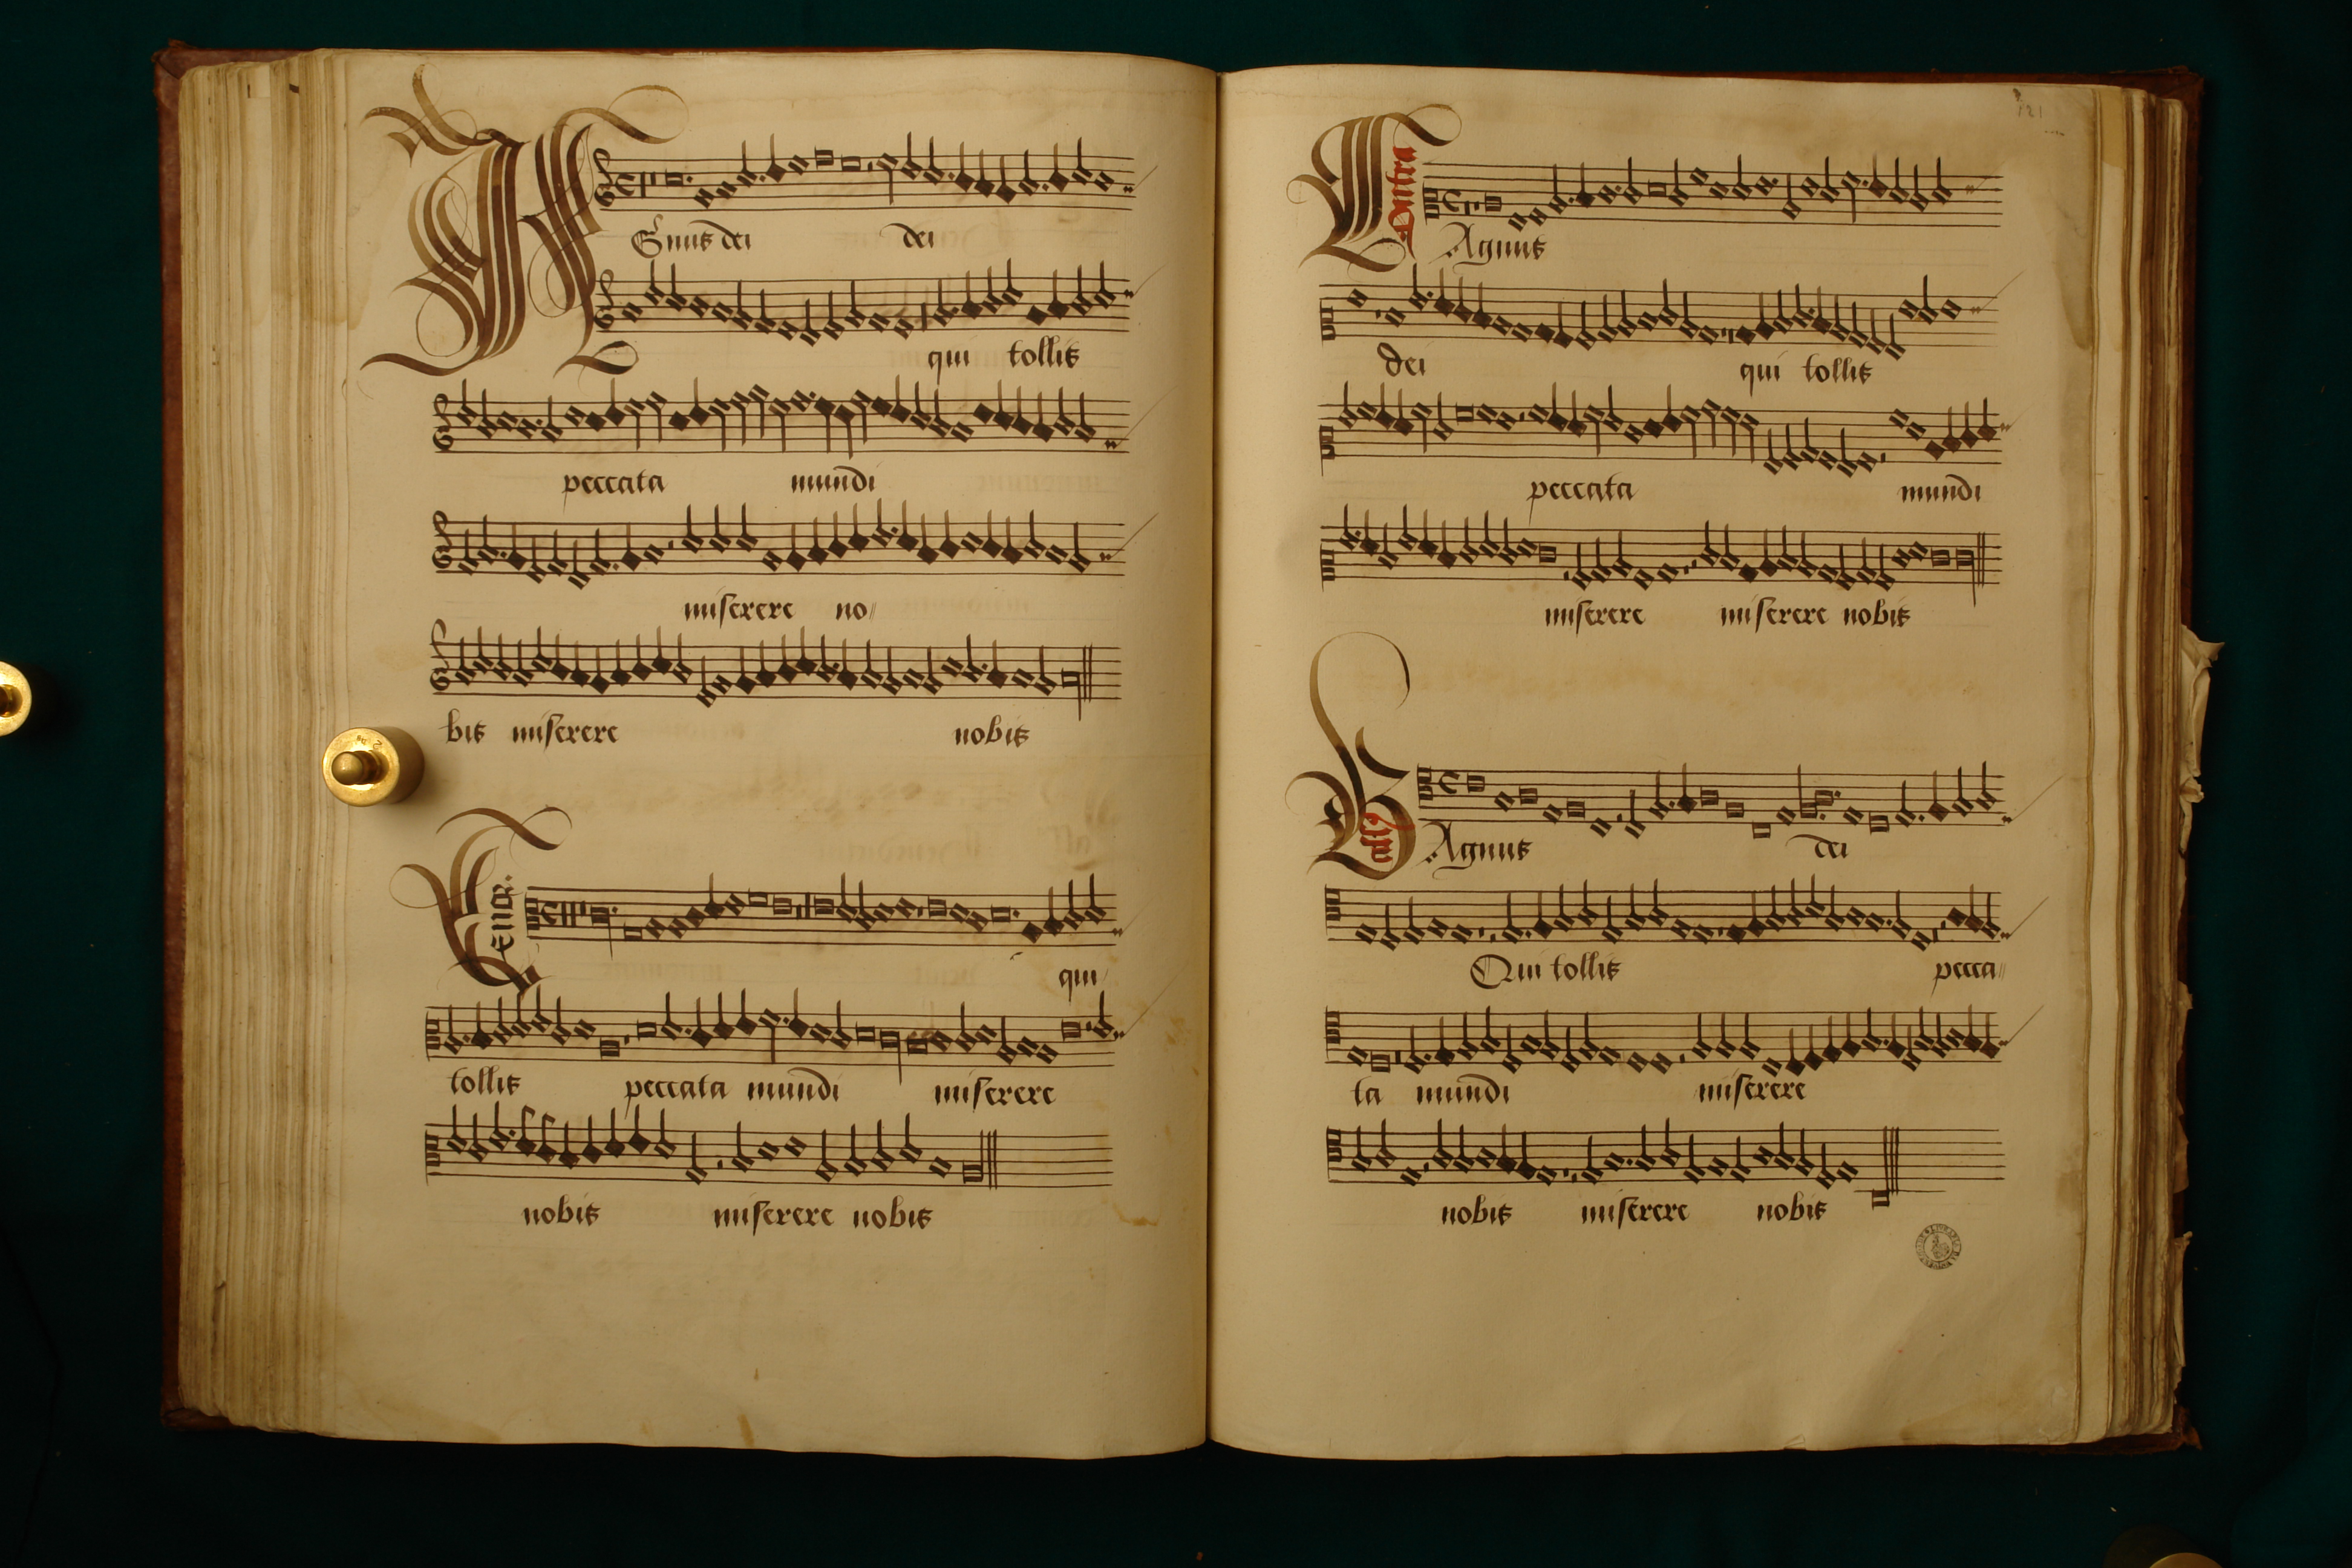 Agnus dei dei
qui tollis
peccata mundi
miserere no//
bis miserere nobis
Tenor.
qui/
tollis peccata mundi miserere
nobis miserere nobis
121
Contra
Agnus
dei qui tollis
peccata mundi
miserere miserere nobis
Agnus dei
Qui tollis pecca//
ta mundi miserere
nobis miserere nobis